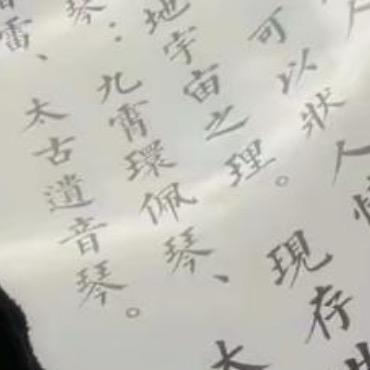 人情
可以狀人
地宇宙之理。
現存
琴：九霄環佩琴、
雷、太古遺音琴。